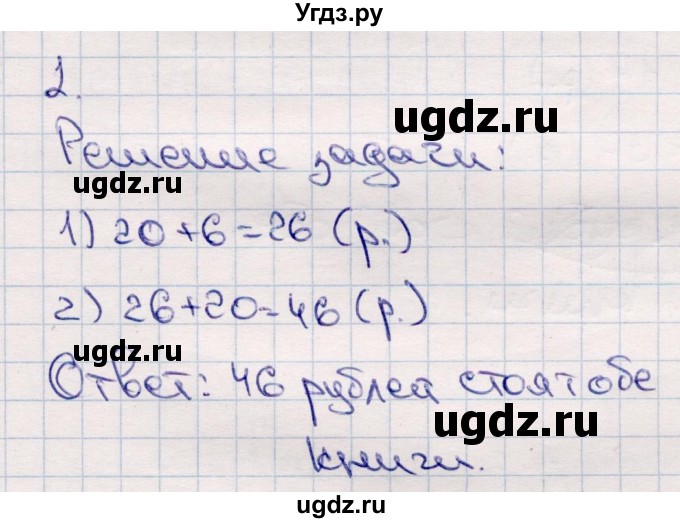 Угдз.ру
2.
ugdz.ru
Решение задачи:
ugdz.ru
1) 20+6=26 (р.)
2) 26+20=46 (р.)
ugdz.ru
Ответ: 46 рублей стоят обе
ugdz.ru
книги.
ugdz.ru